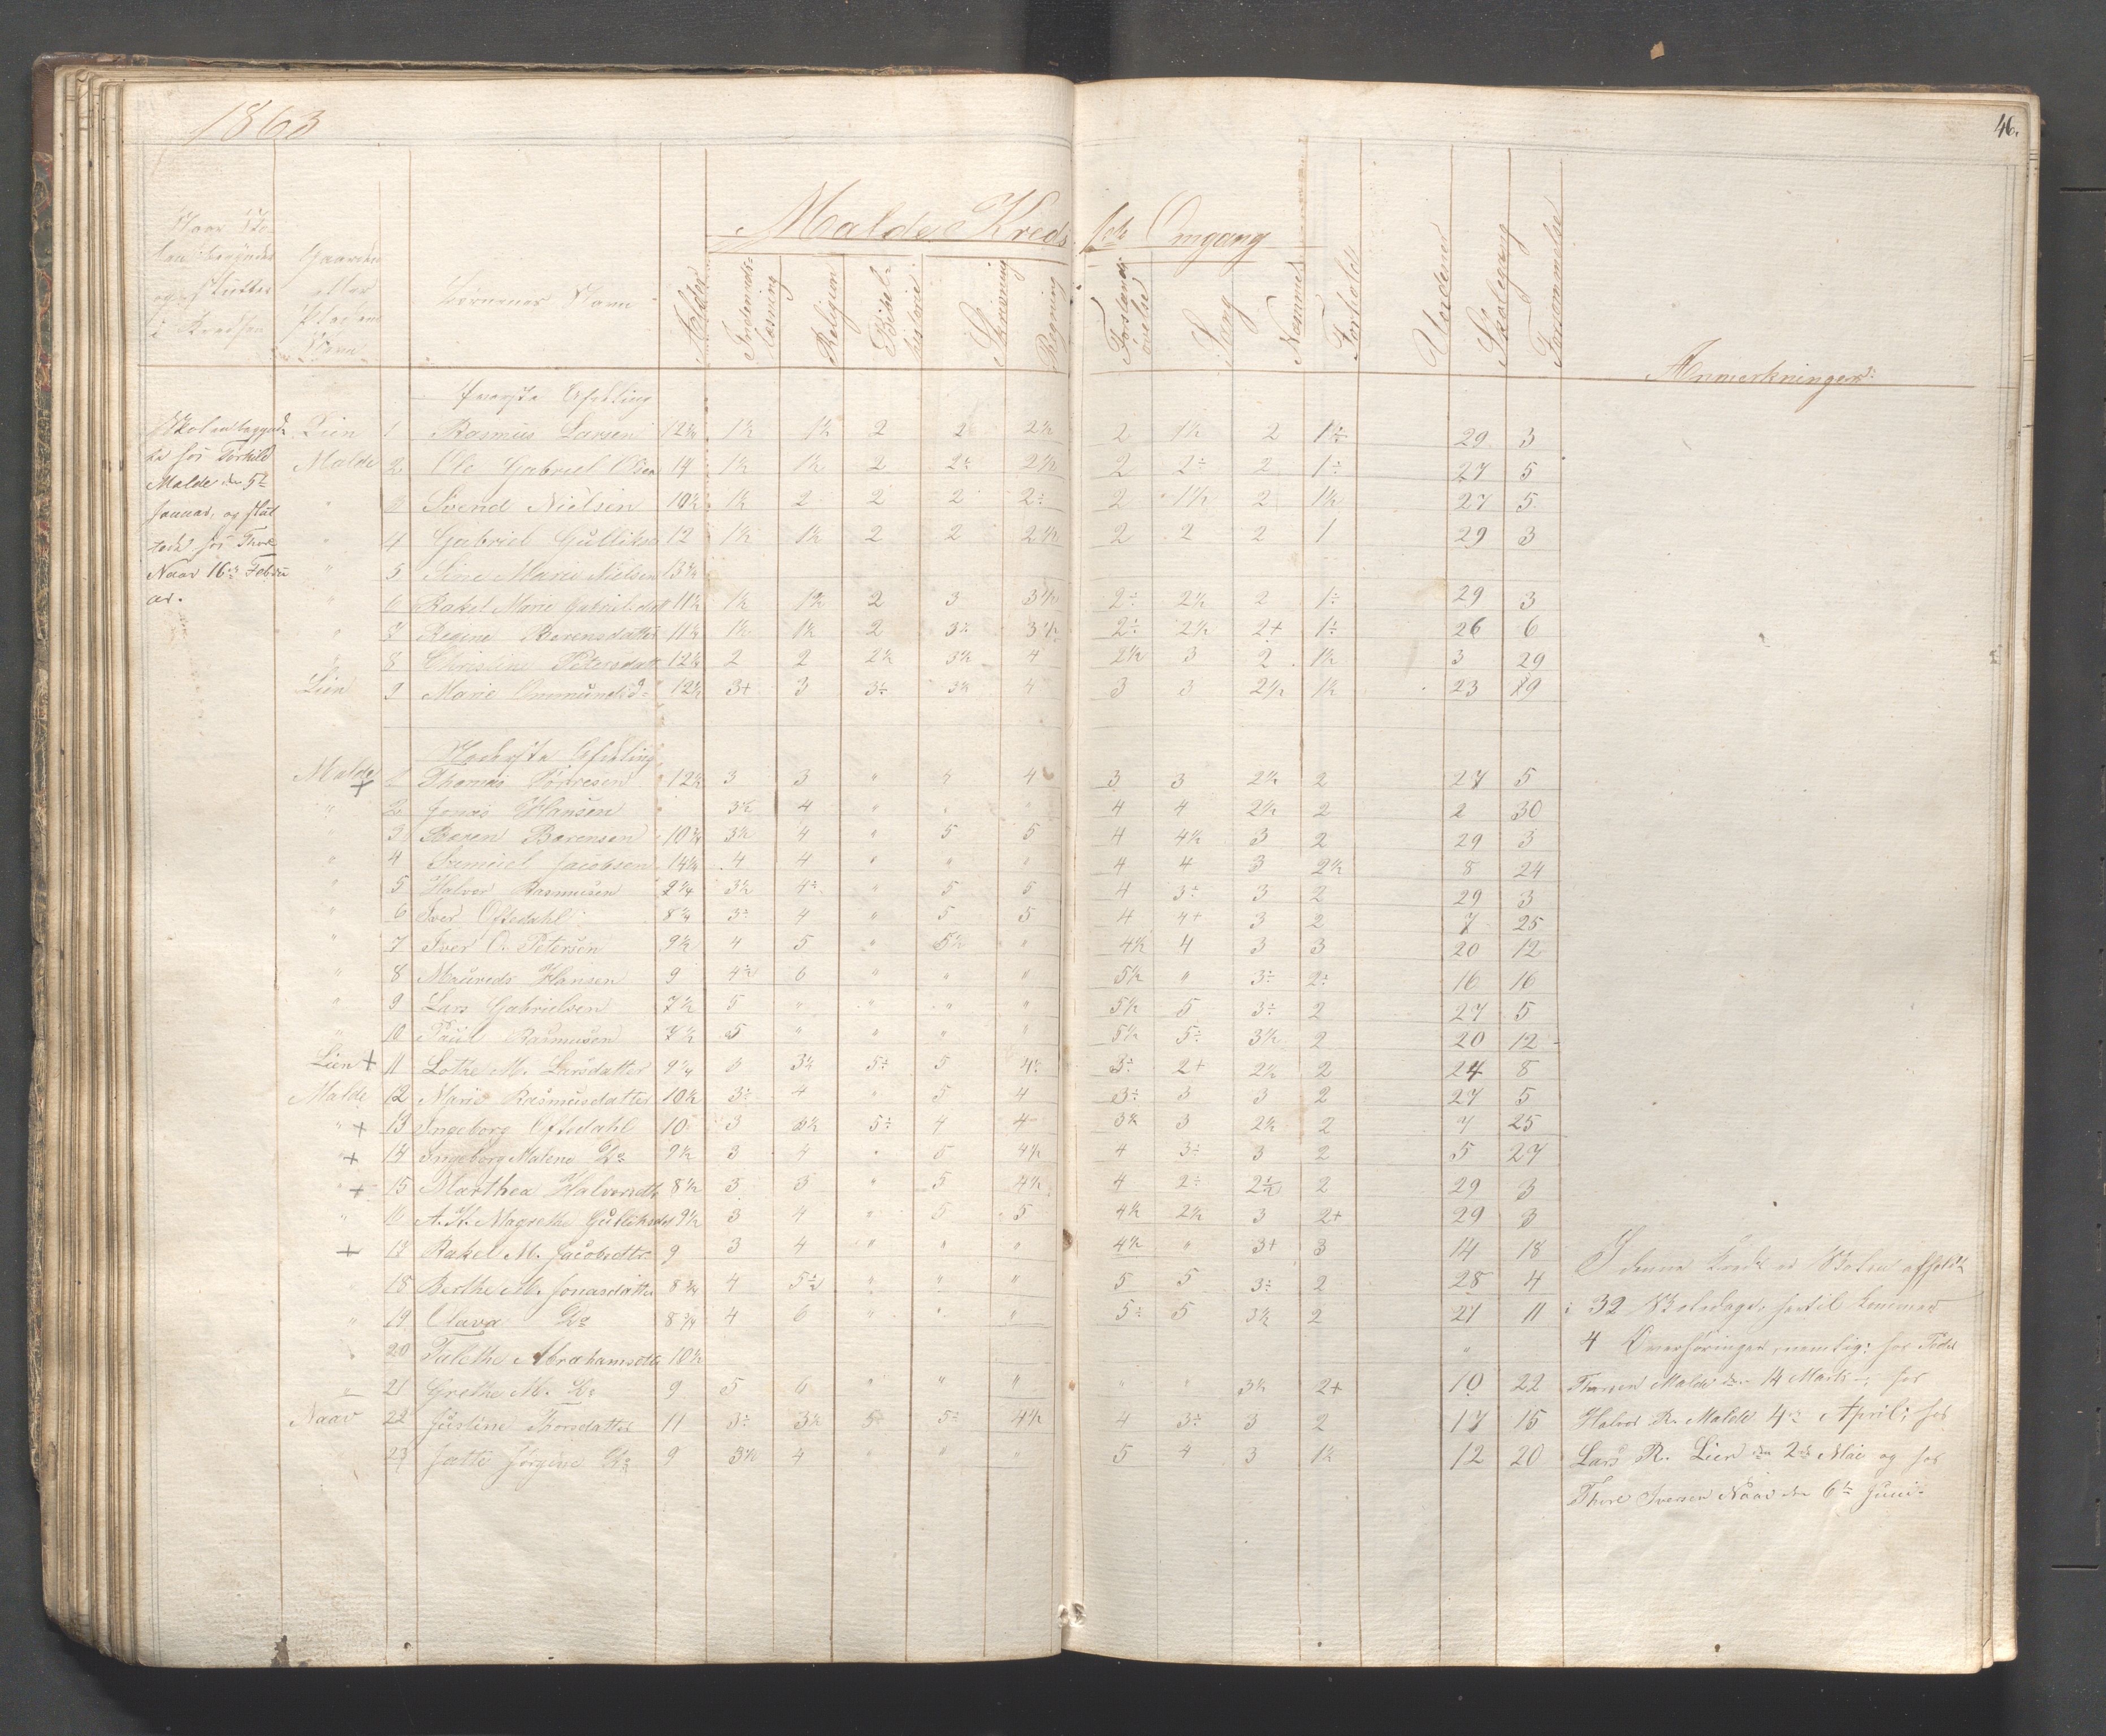 1863
46.
Malde Kreds 1ste Omgang
Naar Skolen begyndes og sluttes i Kredsen
Gaardens eller Pladsens Navn
Børnenes Navn
Alder
Indenadslæsning
Religion
Bibelhistorie
Skrivning
Regning
Forstandsøvelse
Sang
Nemme
Forhold
Udeladt
Skolegang
Forsømmelse
Anmærkninger:
Øverste Afdeling
Skolen begyndte hos Torkild Malde den 5te Januar, og sluttede hos Thore Naav 16de Februar.
Lien 1 Rasmus Larsen 12¾ 1½ 1½ 2 2 2½ 2 1½ 2 1½ 29 3
Malde 2 Ole Gabriel Olsen 14 1½ 1½ 2 2½ 2½ 2 2÷ 2 1÷ 27 5
" 3 Svend Nielsen 10½ 1½ 2 2 2 2÷ 2 1½ 2 1½ 27 5
" 4 Gabriel Gulliksen 12 1½ 1½ 2 2 2½ 2 2 2 1 29 3
" 5 Sine Marie Nielsen 13¾
" 6 Rakel Marie Gabrielsdatt 11½ 1½ 1½ 2 3 3½ 2÷ 2½ 2 1÷ 29 3
" 7 Regine Berensdatter 11½ 1½ 1½ 2 3½ 3½ 2÷ 2½ 2+ 1÷ 26 6
" 8 Christine Petersdatt 12¾ 2 2 2½ 3½ 4 2½ 3 2 1½ 3 29
Lien 9 Marie Ommundsd 12½ 3+ 3 3÷ 3½ 4 3 3 2½ 1½ 23 9
Nederste Afdeling
Malde + 1 Thomas Tørresen 12½ 3 3 " 4 4 3 3 2½ 2 27 5
" 2 Jonas Hansen 3½ 4 " " 4 4 2½ 2 2 30
" 3 Beren Berensen 10¾ 3½ 4 " 5 5 4 4½ 3 2 29 3
" 4 Samuel Jacobsen 14¼ 4 4 " " " 4 4 3 2½ 8 24
" 5 Halvor Rasmusen 9¼ 3½ 4÷ " 5 5 4 3÷ 3 2 29 3
" 6 Iver Oftedahl 8¾ 3÷ 4 " 5 5 4 4+ 3 2 7 25
" 7 Iver O. Petersen 9½ 4 5 " 5½ " 4½ 4 3 3 20 12
" 8 Maureds Hansen 9 4½ 6 " " " 5½ " 3÷ 2÷ 16 16
" 9 Lars Gabrielsen 7½ 5 " " " " 5½ 5 3÷ 2 27 5
" 10 Paul Rasmusen 7½ 5 " " " " 5½ 5÷ 3½ 2 20 12
Lien + 11 Lothe M. Larsdatter 9¼ 3 3½ 5÷ 5 4÷ 3÷ 2+ 2½ 2 24 8
Malde 12 Marie Rasmusdatter 10½ 3÷ 4 5 4 3÷ 3 3 2 27 5
" + 13 Ingeborg Oftedahl 10 3 3½ 5÷ 4 4 3½ 3 2½ 2 7 25
" + 14 Ingeborg Malene Do 9½ 3 4 " 5 4½ 4 3÷ 3 2 5 27
" + 15 Marthea Halvorsdtr 8½ 3 3 " 5 4½ 4 2÷ 2½ 2 29 3
" 16 A. K. Magrethe Gulliksdt 9½ 3 4 " 5 5 4½ 2½ 3 2+ 29 3
+ 17 Rakel M. Jacobsdtr 9 3 4 " " " 4½ " 3+ 3 14 18
18 Berthe M. Jonasdatter 8¾ 4 5½ " " " 5 5 3÷ 2 28 4
" 19 Olava Do 8¾ 4 6 " " " 5÷ 5 3½ 2 21 11
" 20 Talethe Abrahamsdtr 10½ "
" 21 Grethe M. Do 9 5 6 " " " " " 3½ 2+ 10 22
Naav 22 Justine Thorsdatter 11 3÷ 3½ 5 5÷ 4½ 4 3÷ 3 2 17 15
" 23 Jætte Jørgine Do 9 3½ 4 " " " 5 4 3 1½ 12 20
I denne Kreds er Skolen afholdt
i 32 Skoledage, hertil kommer
4 Overhøringer, nemlig: hos
Malde den 14 Marts, hos
Halvor R. Malde 4de April, hos
Lars R. Lien den 2den Mai og hos
Thore Iversen Naav den 6te Juni.